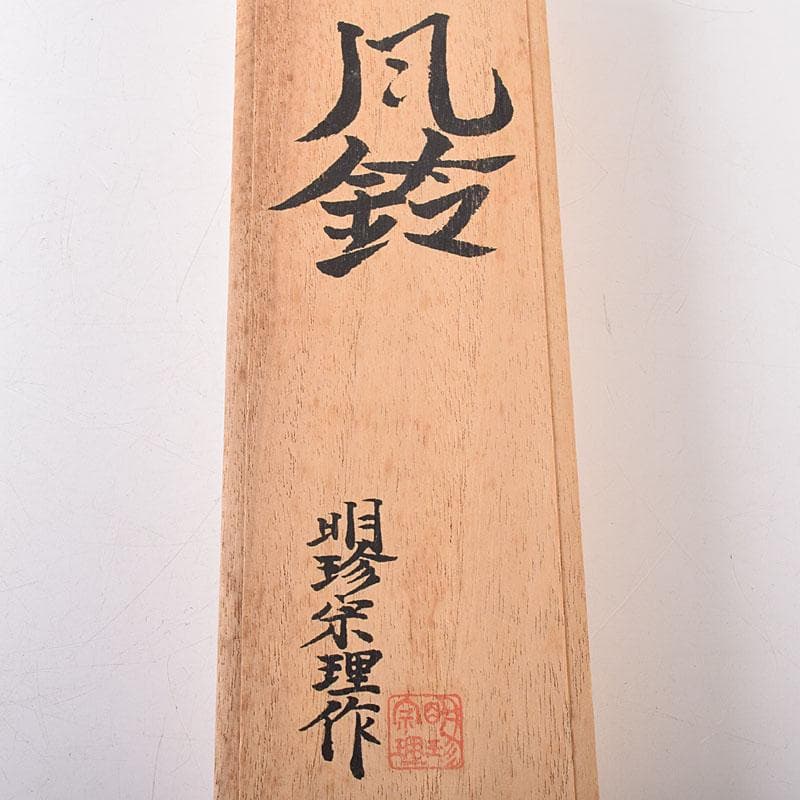 風鈴
明珍宗理作
明珍宗理